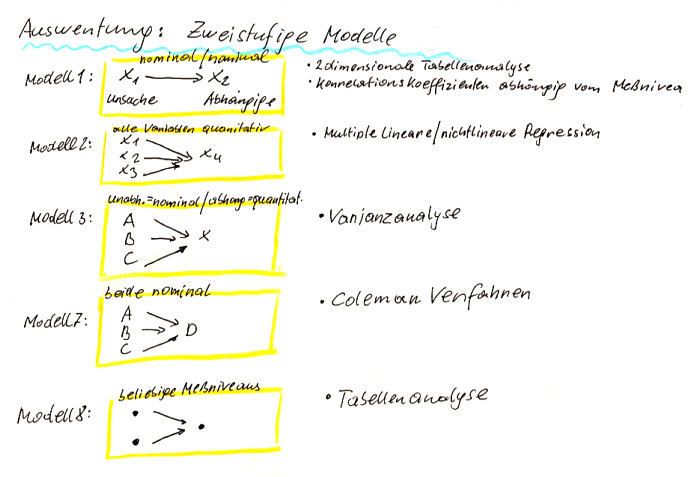 Auswertung: Zweistufige Modelle
nominal/nominal
Modell 1: X1 → X2
Ursache Abhängige
• 2dimensionale Tabellenanalyse
• Korrelationskoeffizienten abhängig vom Meßnivea
alle Variablen quanitativ
Modell 2: X1
X2 X4
X3
• Multiple Lineare/nichtlineare Regression
unabh.=nominal/abhäng=quantitat.
Modell 3: A
B X
C
• Varianzanalyse
beide nominal
Modell 7: A
B D
C
• Coleman Verfahren
beliebige Meßniveaus
Modell 8:
• Tabellenanalyse